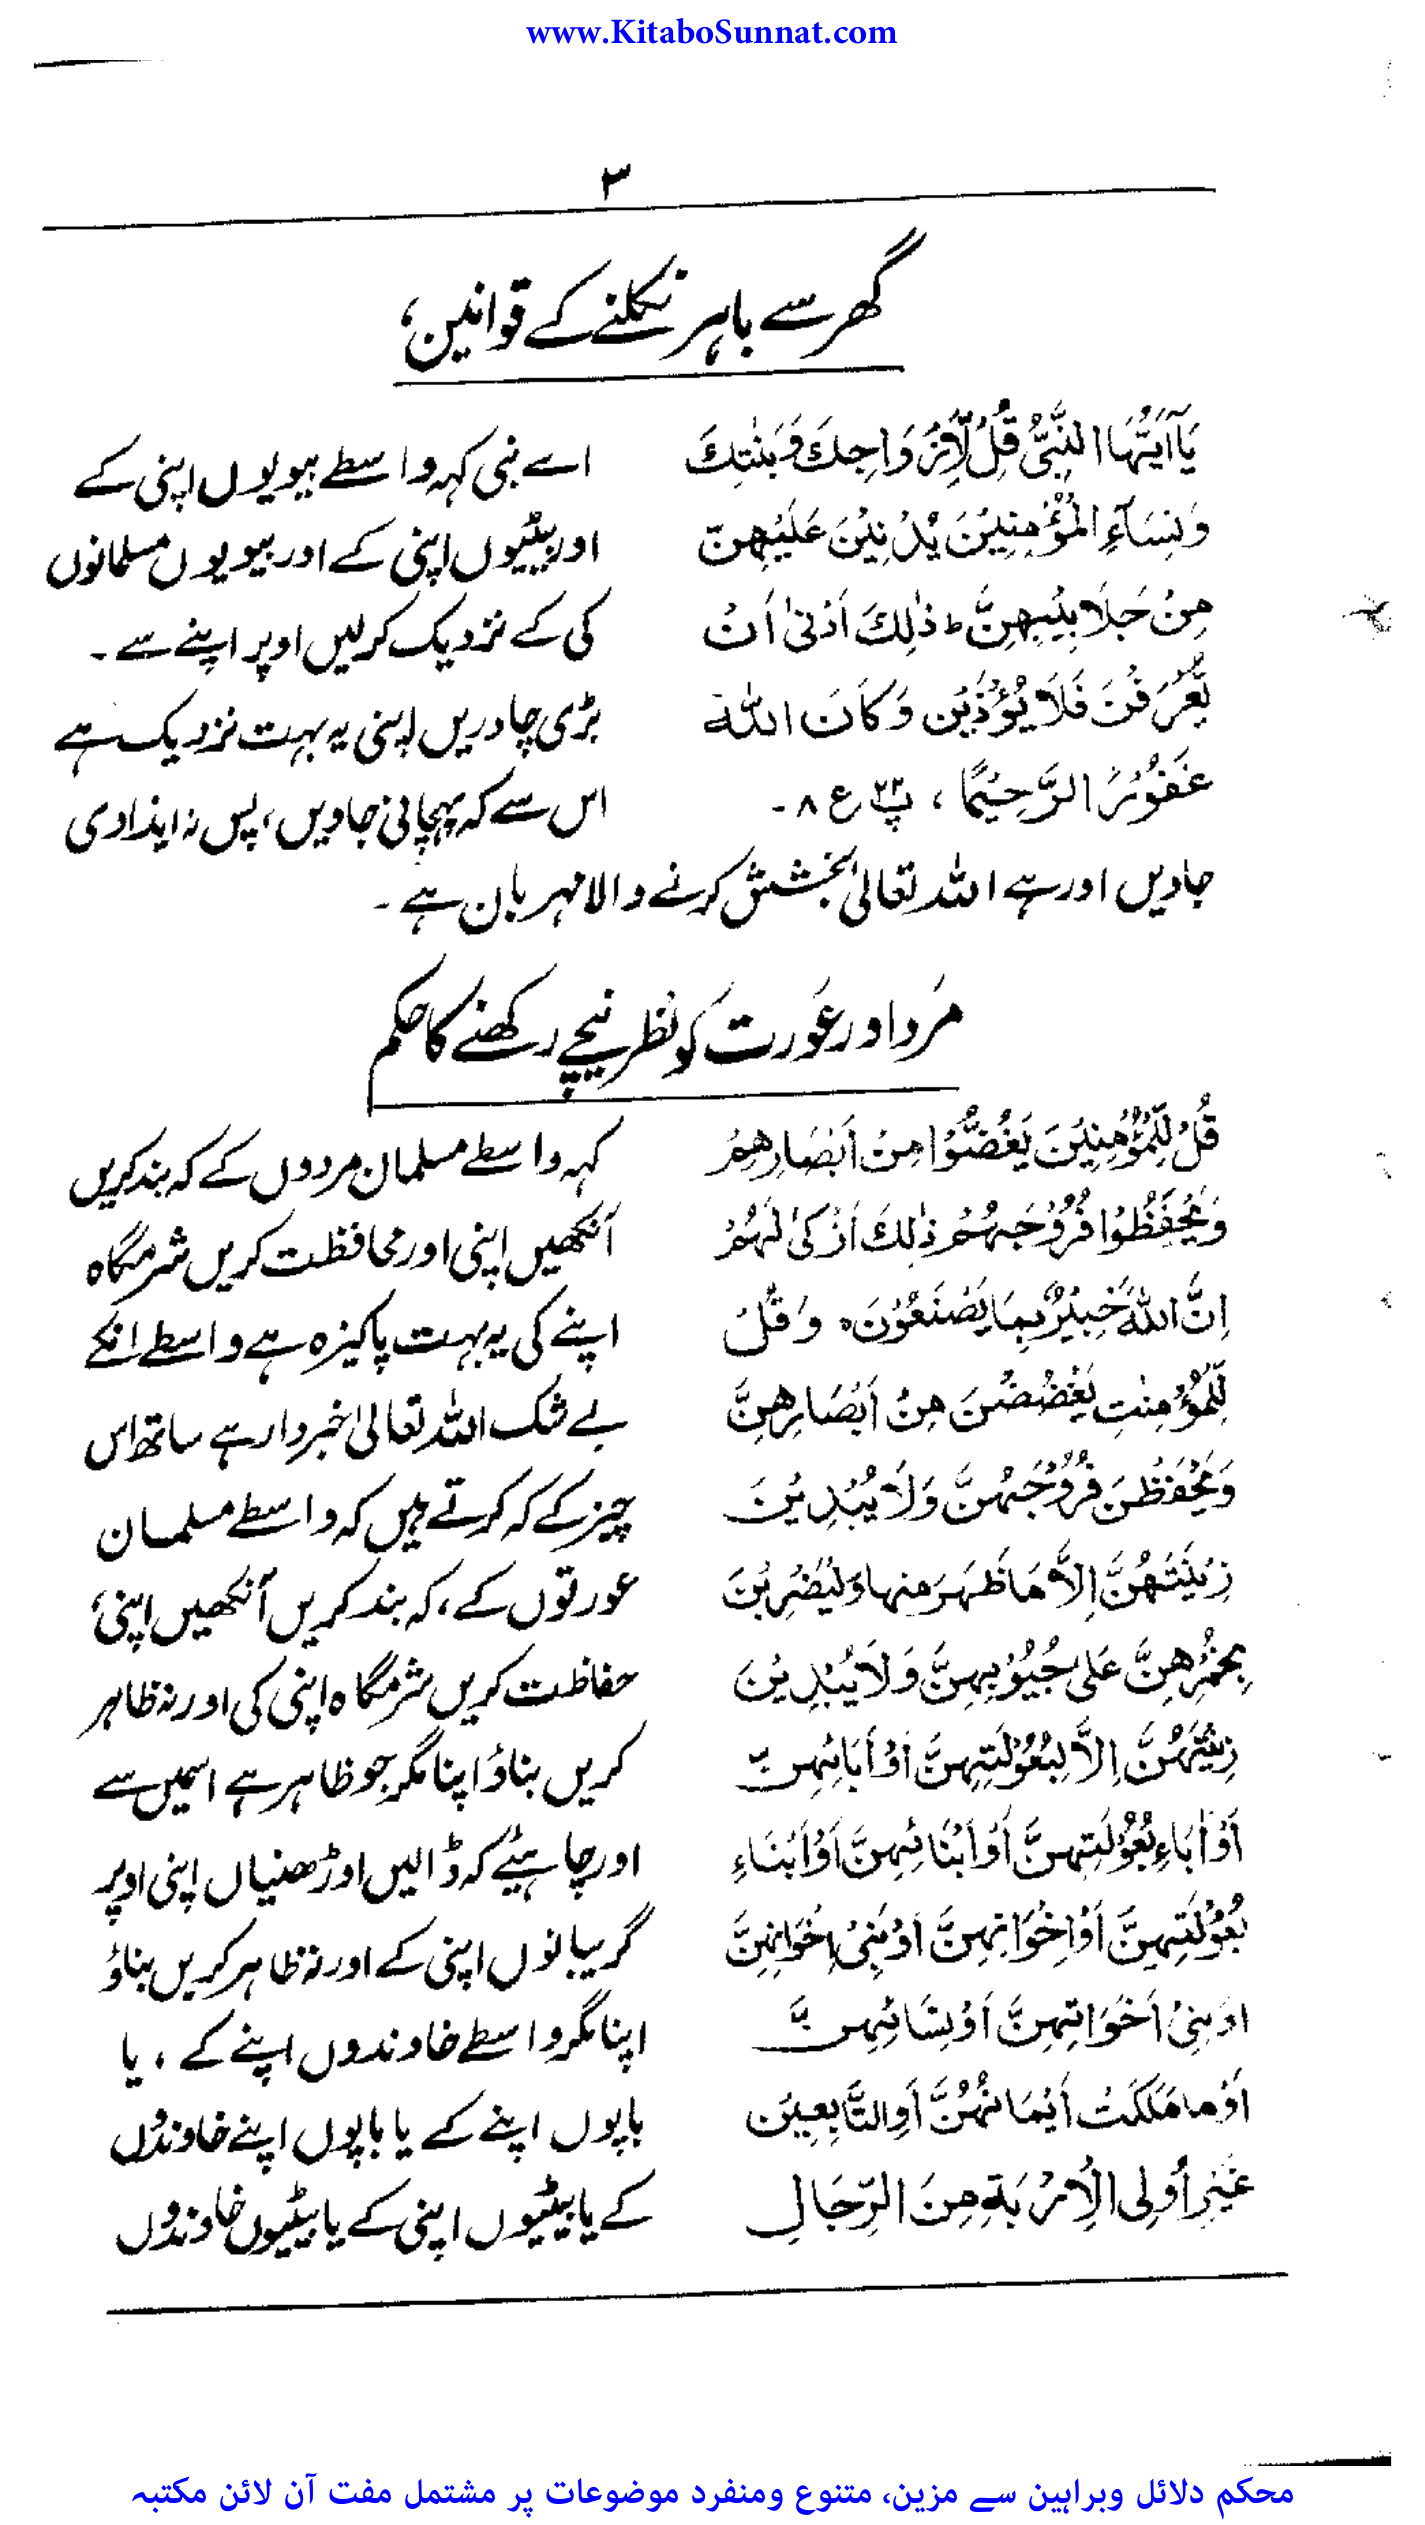 www.KitaboSunnat.com
۳
گھر سے باہر نکلنے کے قوانین،
يَآاَيُّهَا النَّبِيُّ قُلْ لِّاَزْوَاجِكَ وَبَنٰتِكَ
وَنِسَآءِ الْمُؤْمِنِيْنَ يُدْنِيْنَ عَلَيْهِنَّ
مِنْ جَلَابِيْبِهِنَّ ط ذٰلِكَ اَدْنٰى اَنْ
يُّعْرَفْنَ فَلَا يُؤْذَيْنَ وَكَانَ اللّٰهُ
غَفُوْرُ الرَّحِيْمًا ، پ۲۲ ع ۸ -
اے نبی کہہ واسطے بیویوں اپنی کے
اور بیٹیوں اپنی کے اور بیویوں مسلمانوں
کی کے نزدیک کرلیں اوپر اپنے سے ۔
بڑی چادریں اپنی یہ بہت نزدیک ہے
اس سے کہ پہچانی جاویں، پس نہ ایذا دی
جاویں اور ہے اللہ تعالیٰ بخشش کرنے والا مہربان ہے ۔
مرد اور عورت کو نظر نیچے رکھنے کا حکم
قُلْ لِّلْمُؤْمِنِيْنَ يَغُضُّوْا مِنْ اَبْصَارِهِمْ
وَيَحْفَظُوْا فُرُوْجَهُمْ ذٰلِكَ اَزْكٰى لَهُمْ
اِنَّ اللّٰهَ خَبِيْرٌ بِمَا يَصْنَعُوْنَ ه وَقُلْ
لِّلْمُؤْمِنٰتِ يَغْضُضْنَ مِنْ اَبْصَارِهِنَّ
وَيَحْفَظْنَ فُرُوْجَهُنَّ وَلَا يُبْدِيْنَ
زِيْنَتَهُنَّ اِلَّا مَا ظَهَرَ مِنْهَا وَلْيَضْرِبْنَ
بِخُمُرِهِنَّ عَلٰى جُيُوْبِهِنَّ وَلَا يُبْدِيْنَ
زِيْنَتَهُنَّ اِلَّا لِبُعُوْلَتِهِنَّ اَوْ اٰبَائِهِنَّ
اَوْ اٰبَاءِ بُعُوْلَتِهِنَّ اَوْ اَبْنَائِهِنَّ اَوْ اَبْنَاءِ
بُعُوْلَتِهِنَّ اَوْ اِخْوَانِهِنَّ اَوْ بَنِيْ اِخْوَانِهِنَّ
اَوْ بَنِيْ اَخَوَاتِهِنَّ اَوْ نِسَائِهِنَّ
اَوْ مَا مَلَكَتْ اَيْمَانُهُنَّ اَوِ التَّابِعِيْنَ
غَيْرِ اُولِى الْاِرْبَةِ مِنَ الرِّجَالِ
کہہ واسطے مسلمان مردوں کے کہ بند کریں
آنکھیں اپنی اور محافظت کریں شرمگاہ
اپنے کی یہ بہت پاکیزہ ہے واسطے انکے
بے شک اللہ تعالیٰ خبردار ہے ساتھ اس
چیز کے کہ کرتے ہیں کہہ واسطے مسلمان
عورتوں کے، کہ بند کریں آنکھیں اپنی،
حفاظت کریں شرمگاہ اپنی کی اور نہ ظاہر
کریں بناؤ اپنا مگر جو ظاہر ہے اسمیں سے
اور چاہیئے کہ ڈالیں اوڑھنیاں اپنی اوپر
گریبانوں اپنی کے اور نہ ظاہر کریں بناؤ
اپنا مگر واسطے خاوندوں اپنے کے ، یا
باپوں اپنے کے یا باپوں اپنے خاوندوں
کے یا بیٹیوں اپنی کے یا بیٹیوں خاوندوں
محکم دلائل وبراہین سے مزین، متنوع ومنفرد موضوعات پر مشتمل مفت آن لائن مکتبہ